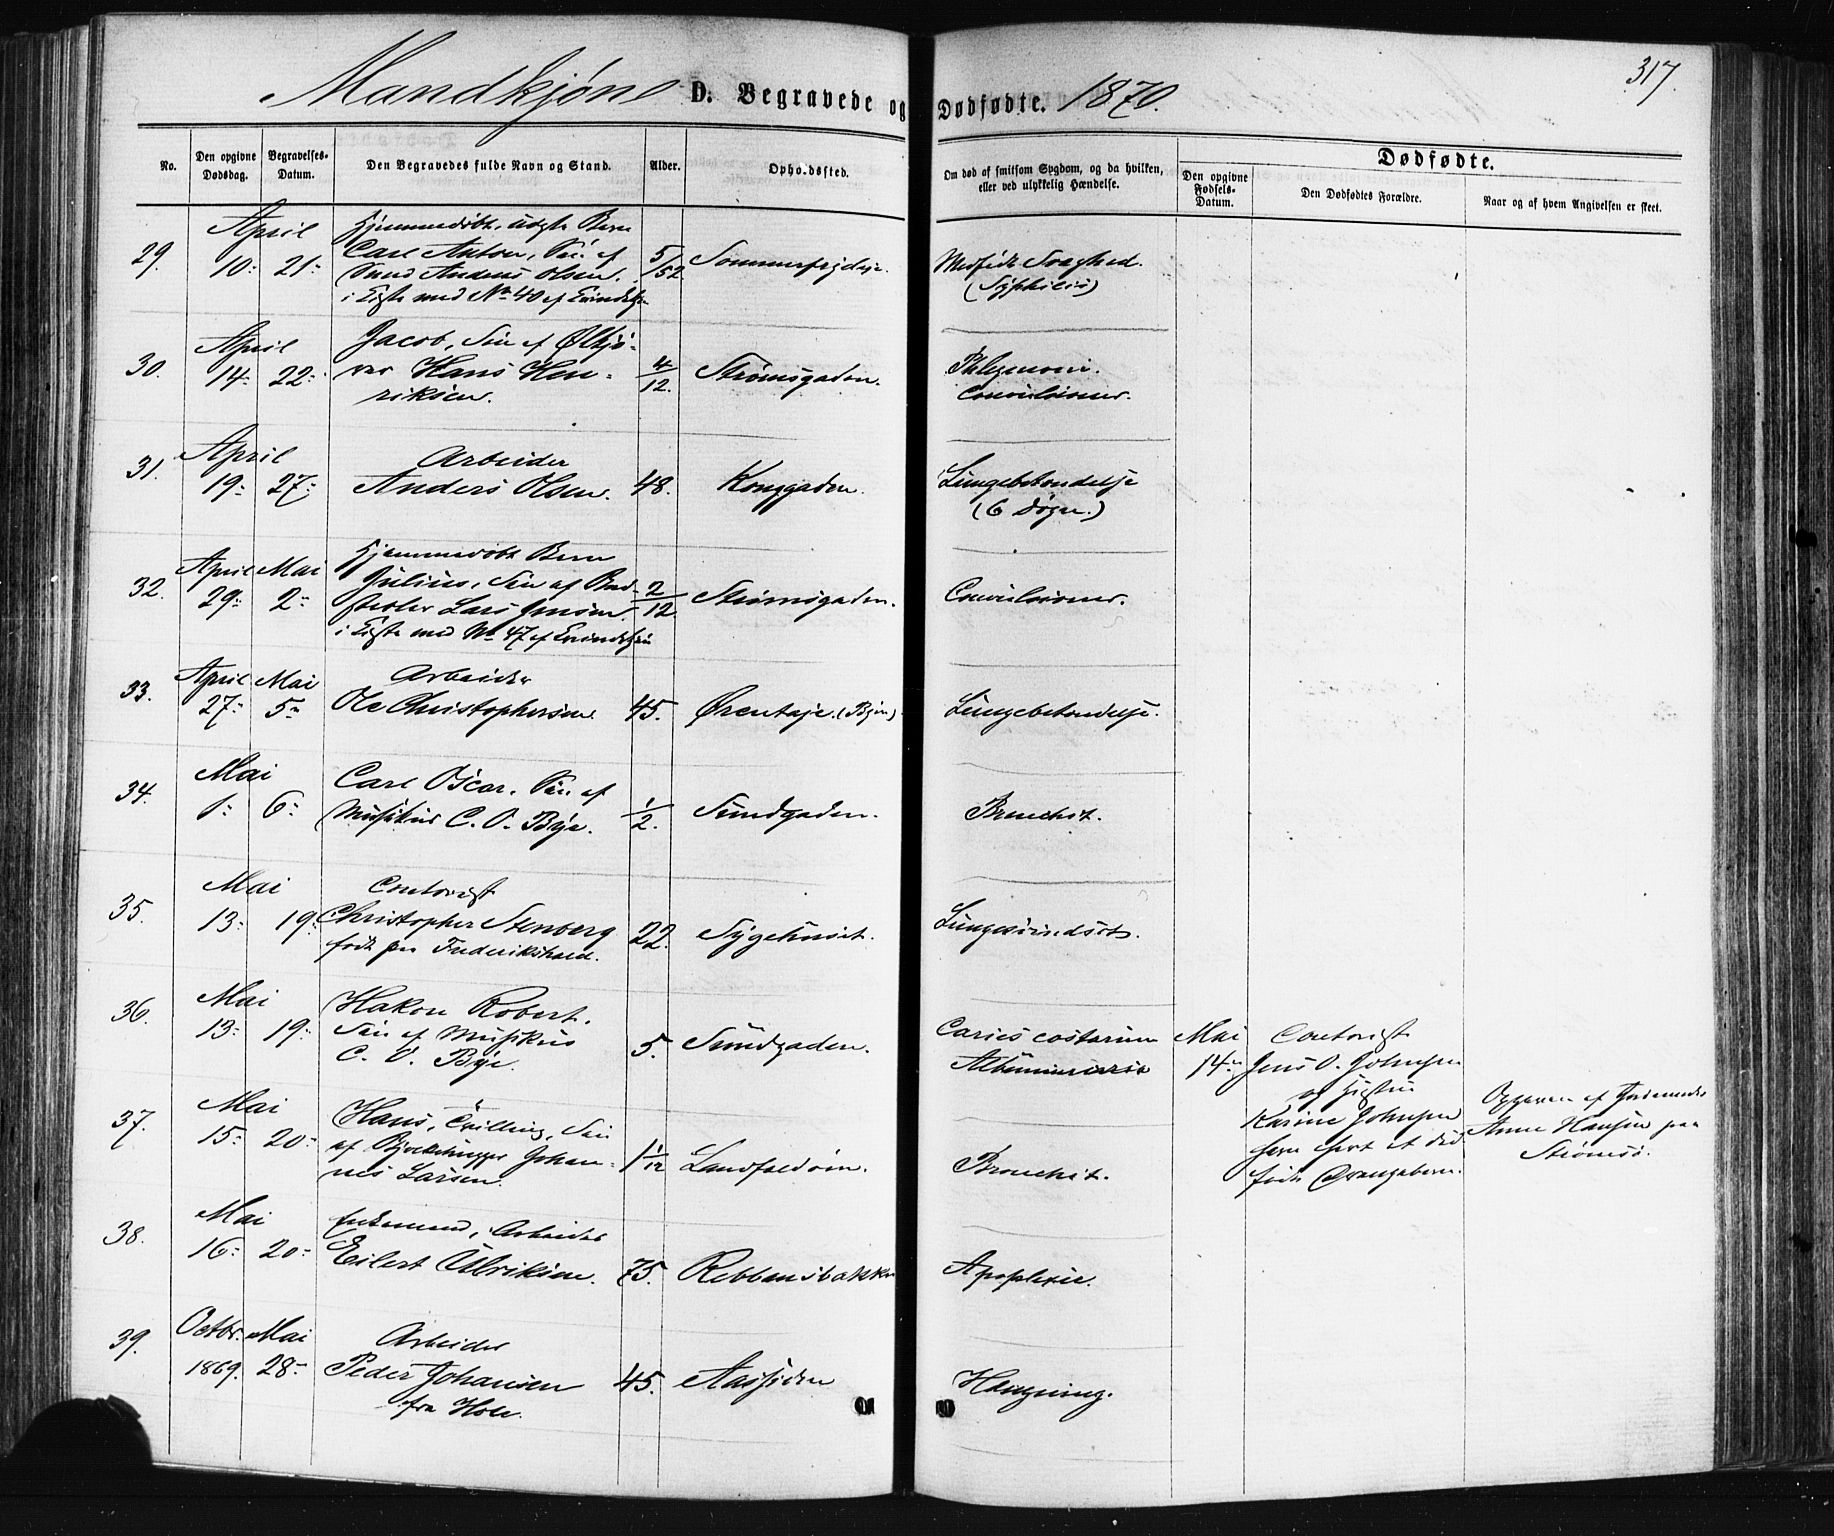 Mandkjøn D. Begravede og Dødfødte. 1870.
317.
No.
Den opgivne Dødsdag.
Begravelses-Datum.
Den Begravedes fulde Navn og Stand.
Alder.
Opholdssted.
Om død af smitsom Sygdom, og da hvilken, eller ved ulykkelig Hændelse.
Dødfødte.
Den opgivne Fødsels-Datum.
Den Dødfødtes Forældre.
Naar og af hvem Angivelsen er skeet.
29.
April
10: 21:
Hjemmedøbt, uægte Barn
Carl Anton, Søn af
Anders Olsen.
i Kiste med No 40 af Kvindekjøn
5/52
Medfødt Svaghed.
(Syphilis)
30.
April
14: 22:
Jacob, Søn af
Hans Hen-
riksen.
4/12.
Strømsgaden.
Phlegmone.
Convulsioner.
31.
April
19: 27:
Arbeider
Anders Olsen.
48.
Konggaden.
Lungebetændelse
(6 Døgn.)
32.
April Mai
29: 2:
Hjemmedøbt Barn
Julius, Søn af Bød-
Lars Jensen.
i Kiste med No 47 af Kvindekjøn
2/12.
Strømsgaden.
Convulsioner.
33.
April Mai
27: 5:
Arbeider
Ole Christophersen.
45.
Ørentøje. (Byen)
Lungebetændelse.
34.
Mai
1: 6:
Carl Oscar, Søn af
Musikus C. O. Bye.
1/2.
Sundgaden.
Bronchit.
35.
Mai
13: 19:
Contorist
Christopher Stenberg
født paa Frederikshald.
22.
Sygehuset.
Lungesvindsot.
36.
Mai
13: 19:
Hakon Robert,
Søn af Musikus
C. O. Bye.
5.
Sundgaden.
Caries costarum
Albuminuria
Mai
14:
Contorist
Jens O. Johnsen
og Hustru
Karine Johnsen
født et død-
født Drengebarn.
Opgiven af Jordemoder
Anne Hansen paa
Strømsø.
37.
Mai
15: 20:
Hans, Tvilling, Søn
af Johan-
nes Larsen.
1 1/12
Landfaldøen.
Bronchit.
38.
Mai
16: 20:
Enkemand, Arbeider
Eilert Ulriksen.
75.
Rebbansbakken
Apoplexie.
39.
Octbr. Mai
1869. 28:
Arbeider
Peder Johansen
fra Hole.
45.
Aassiden
Hængning.